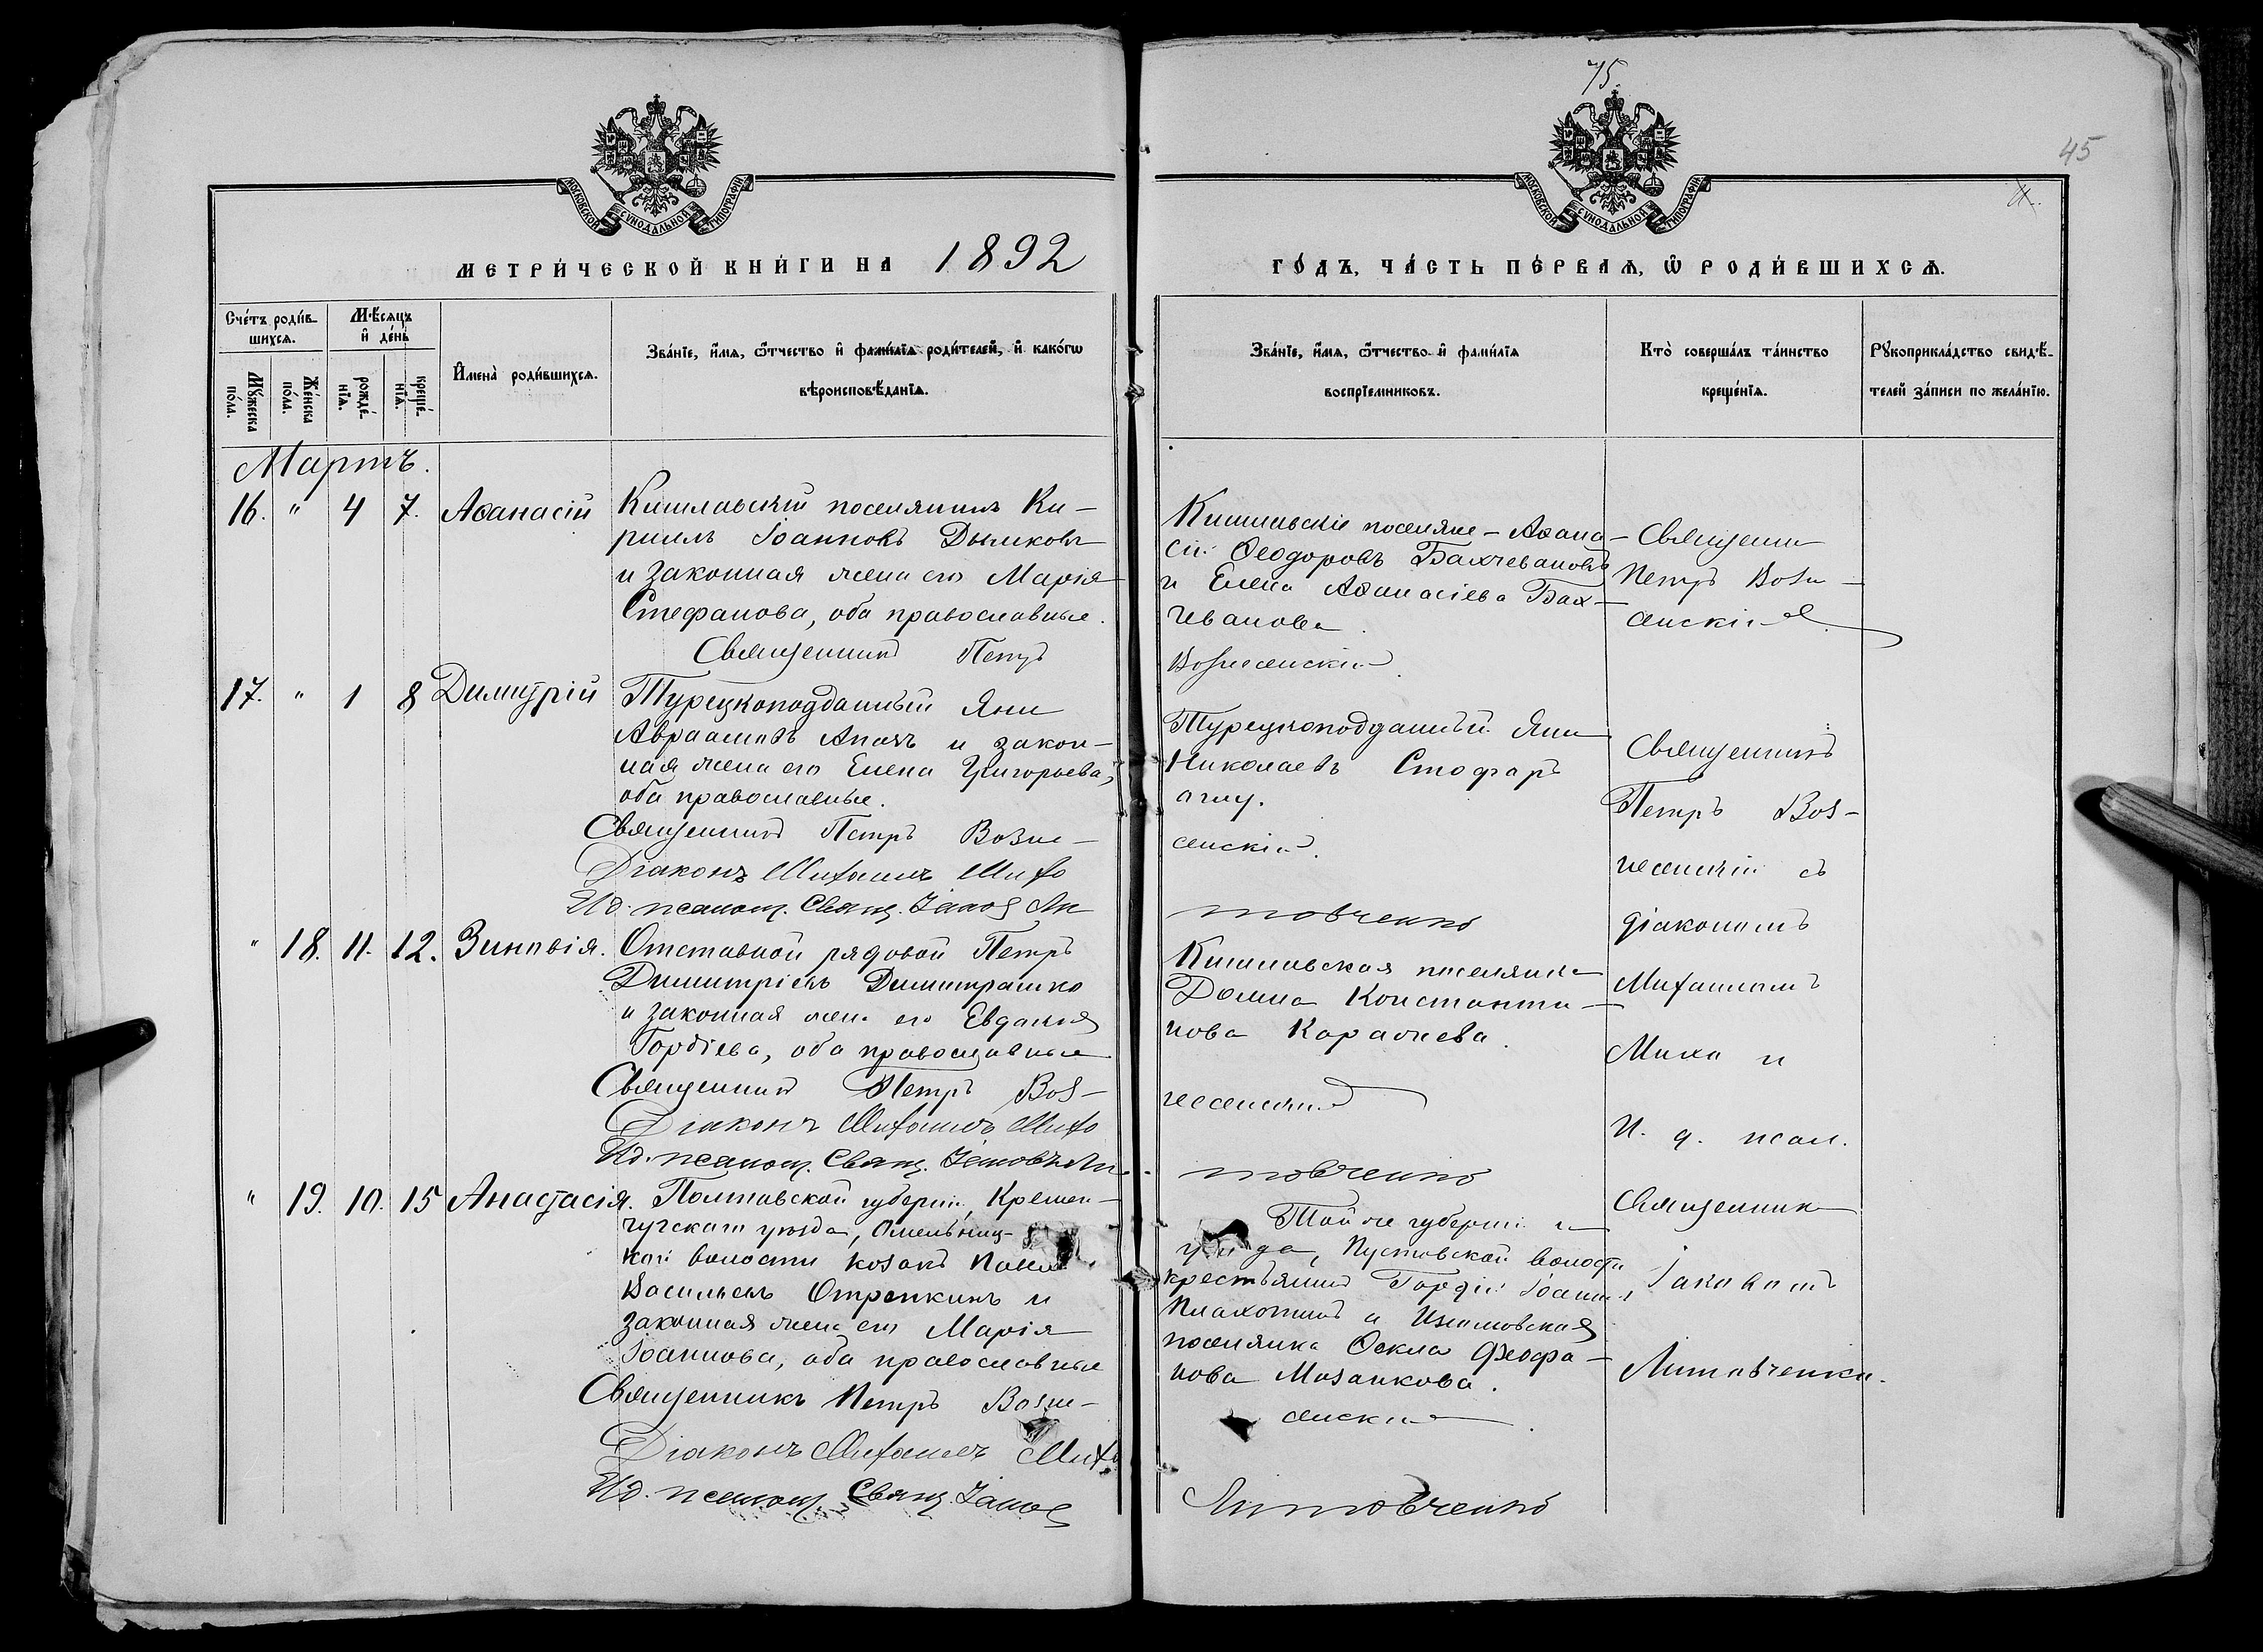 75.
45
МОСКОВСКОЙ СУНОДАЛЬНОЙ ТИПОГРАФІИ
МОСКОВСКОЙ СУНОДАЛЬНОЙ ТИПОГРАФІИ
МЕТРИ́ЧЕСКОЙ КНИ́ГИ НА 1892
ГО́ДЪ, ЧА́СТЬ ПЕ́РВАѦ, Ѽ РОДИ́ВШИХСѦ.
Сче́тъ роди́в-
шихсѧ.
Мꙋ́жеска
по́ла.
Же́нска
по́ла.
Мѣ́сѧцъ
и҆ де́нь
рожде́-
нїѧ.
креще́-
нїѧ.
И҆мена̀ роди́вшихсѧ.
Зва́нїе, и҆́мѧ, ѻ҆́тчество и҆ фами́лїѧ роди́телей, и҆ како́гѡ
вѣроисповѣ́данїѧ.
Зва́нїе, и҆́мѧ, ѻ҆́тчество и҆ фами́лїѧ
воспрїемниковъ.
Кто̀ соверша́лъ та́инство
креще́нїѧ.
Рꙋкоприкла́дство свидѣ́-
телей за́писи по жела́нїю.
Мартъ.
16. " 4 7. Аѳанасій
Кишлавскій поселянинъ Ки-
риллъ Іоанновъ Дымковъ
и законная жена его Марія
Стефанова, оба православные.
Священникъ Петръ
Кишлавскіе поселяне - Аѳана-
сій Ѳеодоровъ Бахчевановъ
и Елена Аѳанасіева Бах-
чеванова.
Вознесенскій.
Священни
Петръ Возн-
сенскій
17. " 1 8 Димитрій
Турецкоподданный Яни
Авраамовъ Апачъ и закон-
ная жена его Елена Григорьева,
оба православные.
Священникъ Петръ Возне-
Діаконъ Михаилъ Михо
И д. псаломщ. Свящ. Іаков Ли
Турецкоподданный Яни
Николаевъ Стофаръ
оглу.
сенскій.
товченко
Священникъ
Петръ Воз-
несенскій съ
діакономъ
Михаиломъ
Михо и
И. д. псал.
Священник
Іаковомъ
Литовченко.
" 18. 11. 12. Зиновія.
Отставной рядовой Петръ
Димитріевъ Димитрашко
и законная жена его Евдокія
Гордіева, оба православные
Священникъ Петръ Воз-
Діаконъ Михаилъ Михо
И д. псаломщ. Свящ. Іаковъ Ли-
Кишлавская поселянка
Домна Константи-
нова Карачиева.
несенскій
товченко
" 19. 10. 15 Анастасія.
Полтавской губерніи, Кремен-
чугскаго уезда, Омельниц-
кой волости козакъ Павел
Васильевъ Отрепкинъ и
законная жена его Марія
Іоаннова, оба православные
Священникъ Петръ Возне-
Діаконъ Михаилъ Михо
И д. псаломщ. Свящ. Іаков
Той же губерніи и
уезда, Пустовской волости
крестьянинъ Гордій Іоаннов
Плахотинъ и Кишлавская
поселянка Ѳекла Феофа-
нова Мозанкова.
сенскій
Литовченко